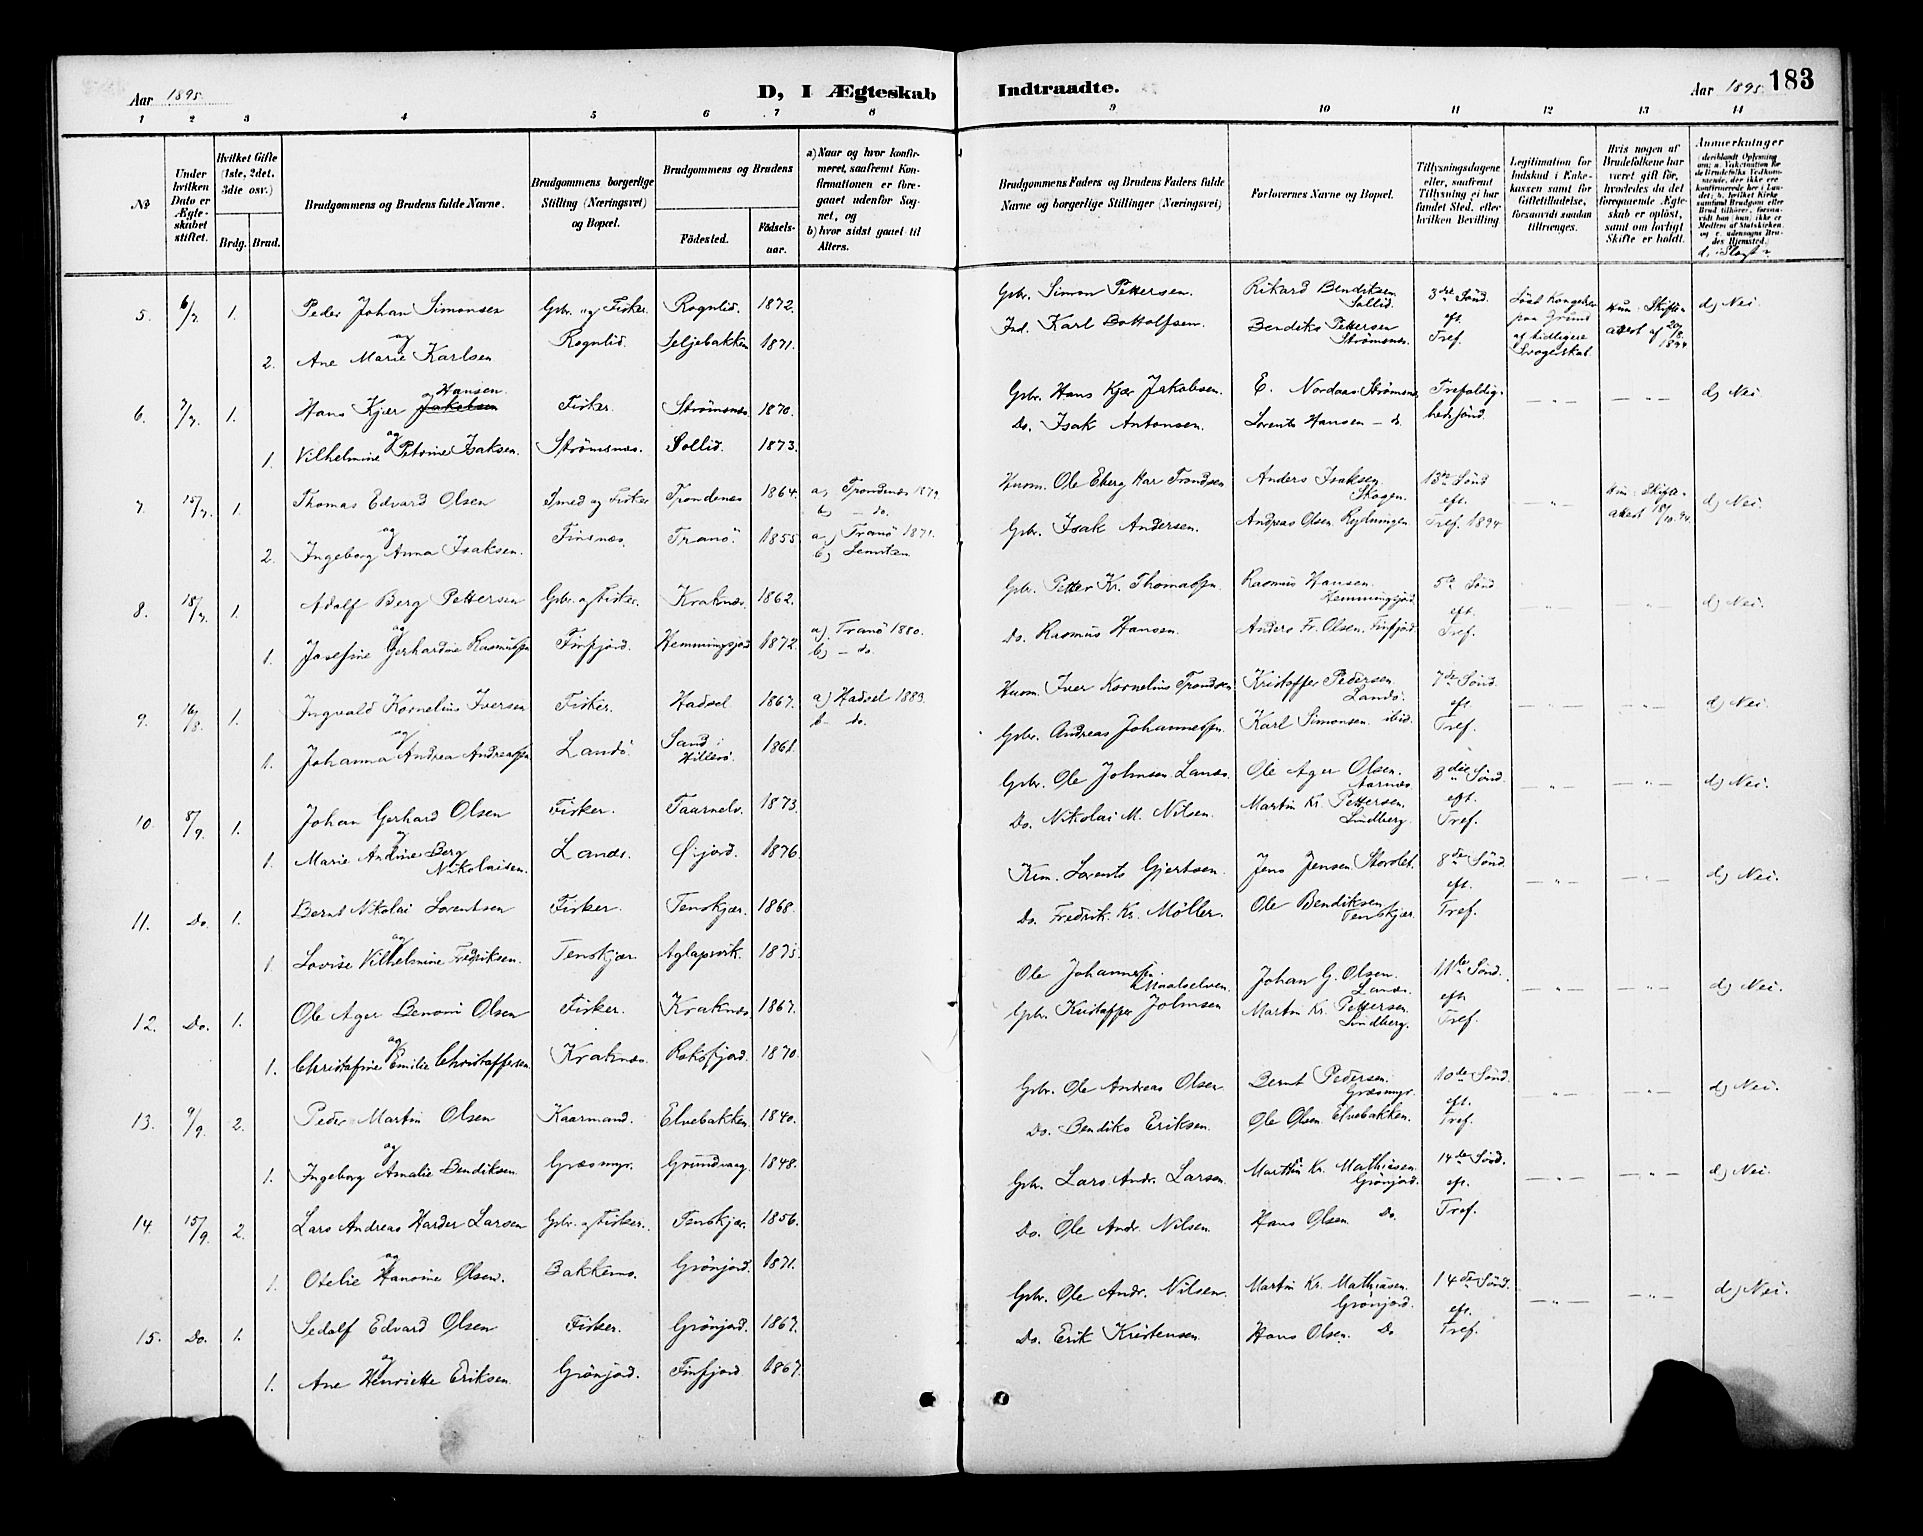 Aar 1895.
D, I Ægteskab
Indtraadte.
Aar 1895.
183
1 2 3 4 5 6 7 8
9 10 11 12 13 14
No
Under hvilken Dato er Ægteskabet stiftet.
Hvilket Gifte (1ste, 2det, 3die osv.)
Brdg. Brud.
Brudgommens og Brudens fulde Navne.
Brudgommens borgerlige Stilling (Næringsvei) og Bopæl.
Brudgommens og Brudens
Fødested.
Fødselsaar.
a) Naar og hvor konfirmeret, saafremt Konfirmationen er foregaaet udenfor Sognet, og
b) hvor sidst gaaet til Alters.
Brudgommens Faders og Brudens Faders fulde Navne og borgerlige Stillinger (Næringsvei)
Forlovernes Navne og Bopæl.
Tillysningsdagene eller, saafremt Tillysning ei har fundet Sted, efter hvilken Bevilling
Legitimation for Indskud i Enkekassen samt for Giftetilladelse, forsaavidt saadan tiltrænges.
Hvis nogen af Brudefolkene har været gift før, hvorledes da det foregaaende Ægteskab er opløst, samt om lovligt Skifte er holdt.
Anmerkninger
5. 6/7. 1. Peder Johan Simonsen Gbr. og Fisker. Rognlid. 1872. Gbr. Simon Pettersen. Rikard Bendiksen Sollid. 3die Sønd. d) Nei.
og Rognlid. Seljebakken 1871. Ind. Karl Bottolfsen. Bendiks Pettersen Strömsnes. eft. Tref.
2. Ane Marie Karlsen
Løst Kongebr. paa Grund af tidligere Svogerskab.
Hun: Skifteattest af 20/8. 1894
6. 7/7. 1. Hans Kjær Jakobsen Hansen Fisker. Strömsnes. 1870. Gbr. Hans Kjær Jakobsen. E. Nordaas Strömsnes Trefoldighedssønd. — " — — " — d) Nei.
og
1. Vilhelmine Petrine Isaksen. Strömsnes. Sollid. 1873. Do. Isak Antonsen. Lorents Hansen — do.
7. 15/7. 1. Thomas Edvard Olsen Smed og Fisker Trondenes 1864. a) Trondenes 1879. b) — do. Huom. Ole Eberg Har Trondsen Anders Isaksen Skogen. 13de Sønd eft. Tref. 1894 — " — Hun: Skifteattest 18/10. 94. d) Nei.
og
2. Ingeborg Anna Isaksen. Finsnes. Tranö. 1855. a) Tranö 1871. b) Gbr. Isak Andersen. Andreas Olsen Rydningen.
8. 18/7. 1. Adolf Berg Pettersen Gbr. og Fisker. Kraknes. 1862. Gbr. Petter Kr. Thomassen. Rasmus Hansen. Hemmingsjord. 5te Sønd eft. Tref. — " — — " — d) Nei.
og
1. Josefine Gerhardine Rasmussen Finfjord. Hemmingsjord 1872. a) Tranö 1880. b) — do. Do. Rasmus Hansen. Anders Fr. Olsen. Finfjord.
9. 16/8. 1. Ingvald Kornelius Iversen Fisker. Hadsel 1867. a) Hadsel 1883. b — do. Huom. Iver Kornelius Trondsen Kristoffer Pedersen Landö. 7de Sønd. eft. Tref. — " — — " — d) Nei.
og
1. Johanna Andrea Andreassen Landö. Sand i Hillesö. 1861. Gbr. Andreas Johannessen. Karl Simonsen. ibid.
10. 8/9. 1. Johan Gerhard Olsen Fisker. Taarnelv. 1873. Gbr. Ole Johnsen Lanes Ole Ager Olsen. Aarnes. 3die Sønd. eft. Tref. — " — — " — d) Nei.
og
1. Marie Andrine Berg Nikolaisen. Lanes. Öijord. 1876. Do. Nikolai M. Nilsen. Martin Kr. Pettersen. Lindberg.
11. Do. 1. Bernt Nikolai Lorentsen Fisker. Tenskjær. 1868. Kem. Lorents Gjertsen. Jens Jensen Storslet. 8de Sønd. eft. Tref. — " — — " — d) Nei.
og
1. Lovise Vilhelmine Fredriksen. Tenskjær. Aglapsvik. 1875. Do. Fredrik Kr. Möller. Ole Bendiksen Tenskjær.
12. Do. 1. Ole Ager Benoni Olsen Fisker. Kraknes 1867. Ole Johannessen Maalselven. Johan G. Olsen. Lanes. 11te Sønd. eft. Tref. — " — — " — d) Nei.
og
1. Christofine Emilie Christoffersen. Kraknes. Roksfjord. 1870. Gbr. Kristoffer Johnsen Martin Kr. Pettersen. Lindberg.
13. 9/9. 2. Peder Martin Olsen Kaarmand. Elvebakken. 1840. Gbr. Ole Andreas Olsen Bernt Pedersen. Græsmyr. 10de Sønd. eft. Tref. — " — — " — d) Nei.
og
1. Ingeborg Amalie Bendiksen. Græsmyr. Grundvaag. 1848. Do. Bendiks Eriksen. Ole Olsen Elvebakken.
14. 15/9. 2. Lars Andreas Harder Larsen Gbr. og Fisker. Tenskjær. 1856. Gbr. Lars Andr. Larsen. Martin Kr. Mathiasen. Grönjord. 14de Sønd. eft. Tref. — " — — " — d) Nei.
og
1. Otelie Hansine Olsen. Bakkenes. Grönjord. 1871. Do. Ole Andr. Nilsen Hans Olsen. Do.
15. Do. 1. Sedolf Edvard Olsen Fisker. Grönjord. 1867. Gbr. Ole Andr. Nilsen. Martin Kr. Mathiasen. Grönjord. 14de Sønd. eft. Tref. — " — — " — d) Nei.
og
1. Ane Henriette Eriksen. Grönjord. Finfjord 1867. Do. Erik Kristensen. Hans Olsen. Do